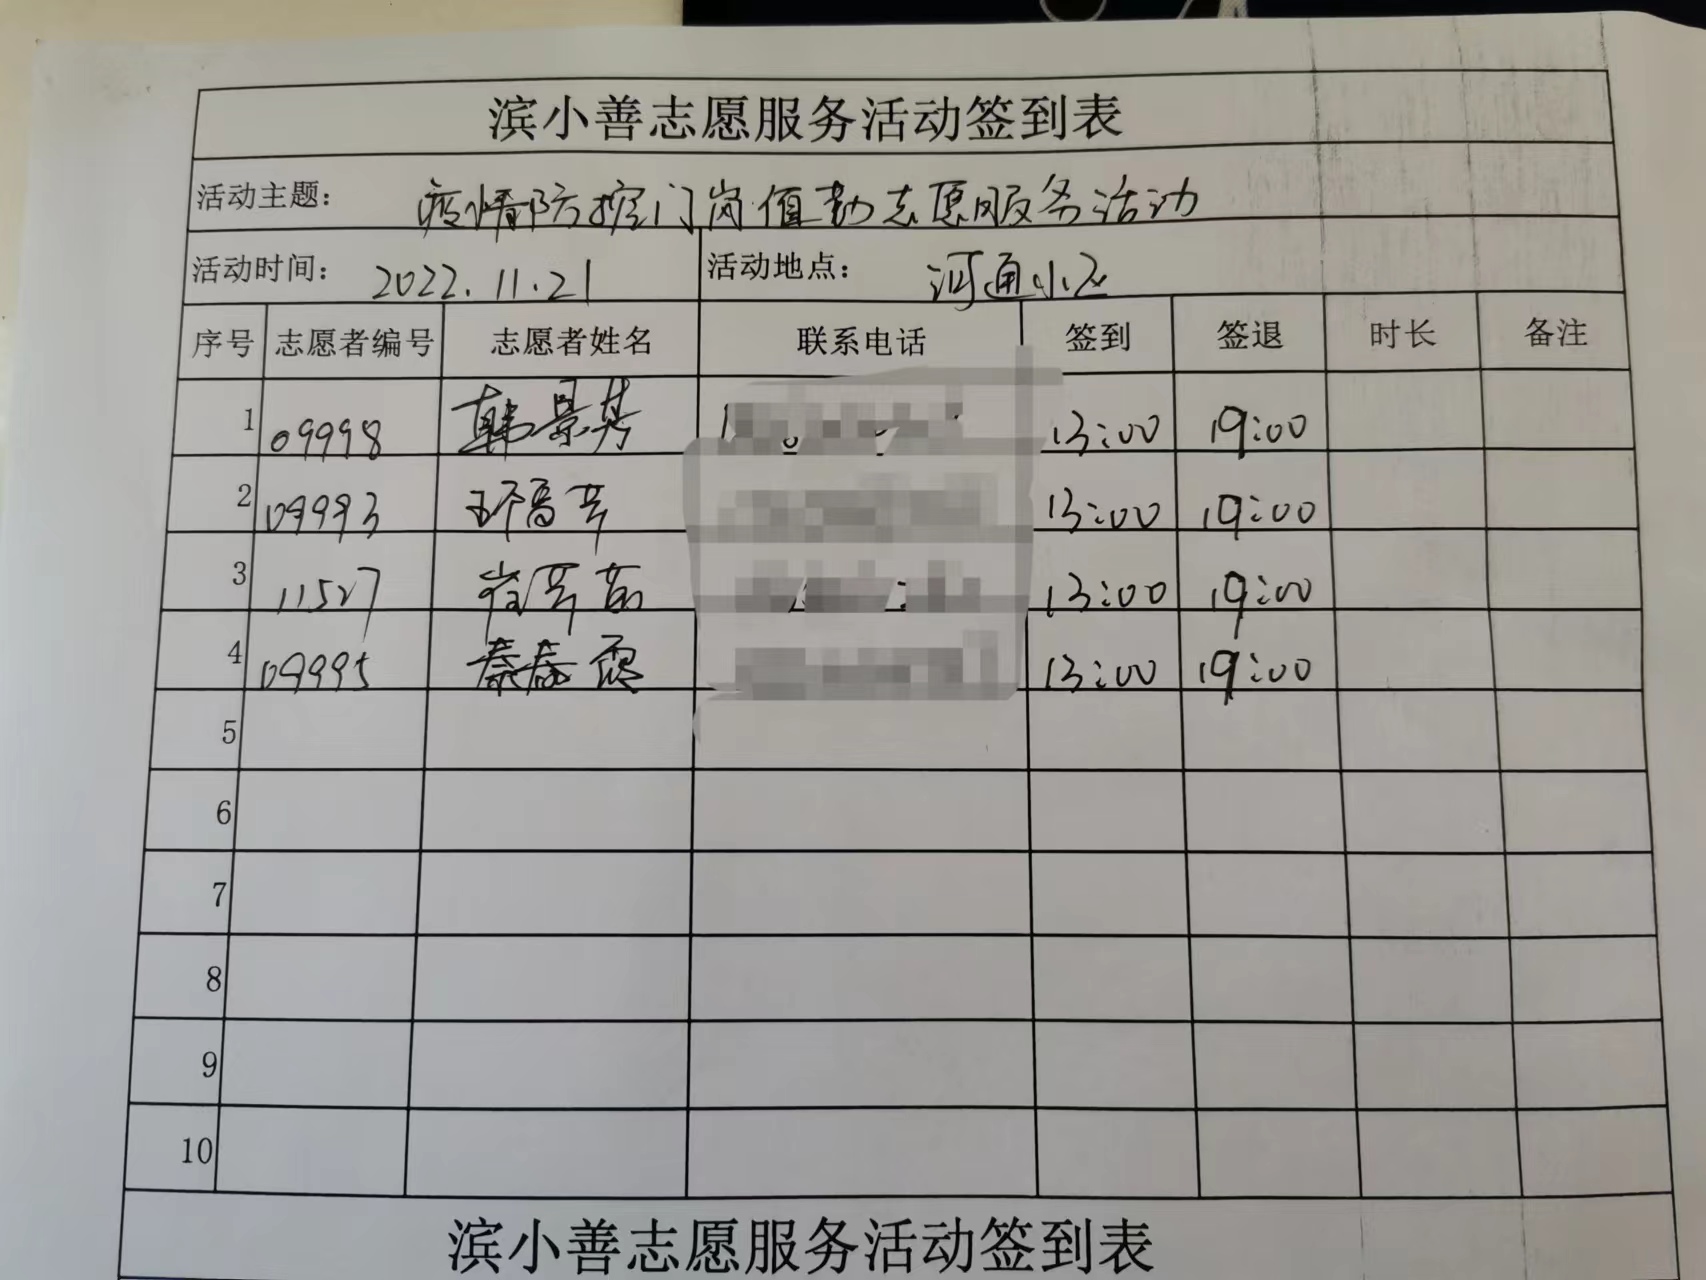 滨小善志愿服务活动签到表
活动主题： 疫情防控门岗值勤志愿服务活动
活动时间： 2022.11.21 活动地点： 河通小区
序号 志愿者编号 志愿者姓名 联系电话 签到 签退 时长 备注
1 09998 韩景芬 13:00 19:00
2 09993 13:00 19:00
3 11527 崔芳茹 13:00 19:00
4 09995 秦春霞 13:00 19:00
5
6
7
8
9
10
滨小善志愿服务活动签到表